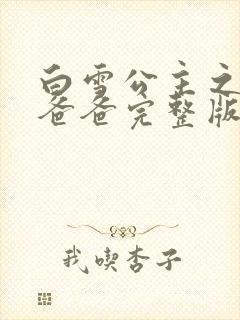 白雪公主之
爸爸完整版
我喫杏子